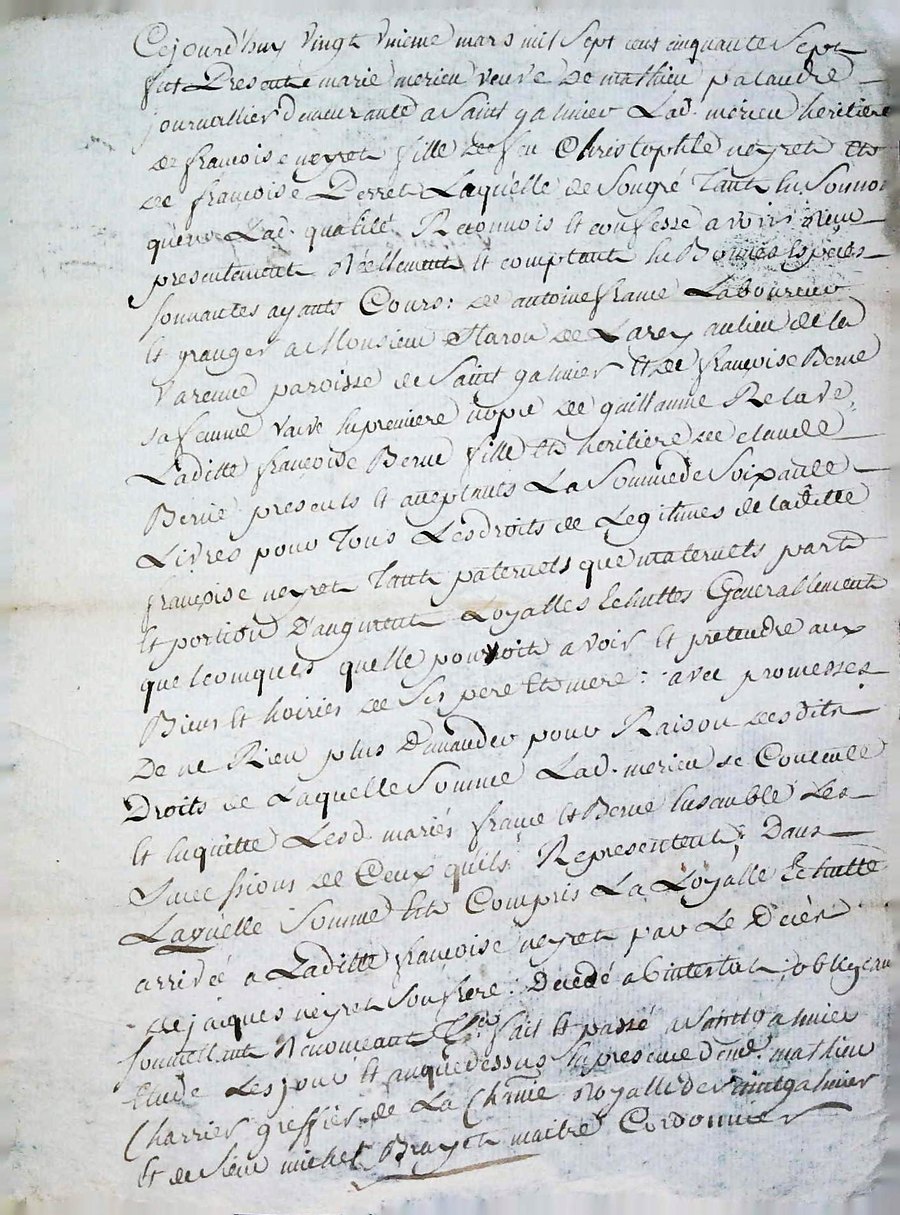 Cejourd'huy vingt unieme mars mil sept cens cinquante sept
fut presente marie merieu veuve de mathieu palandre
journallier demeurante a Saint galmier Lad. merieu heritiere
de francoise neyret fille de feu Christophle neyret et
de francoise Perret Laquelle de Songré tant en Son nom
quen Lad. qualité Reconnois et confesse avoir Receu
presentement Réellement et comptant en Bonnes Especes
sonnantes ayants Cours: de antoine france Laboureur
et granger a Monsieur de Larey au lieu de la
Varenne paroisse de Saint galmier et de francoise Berne
sa femme vaive en premiere nopce de guillaume Relave,
Laditte francoise Berne fille et heritiere de claude
Berne presents et acceptants La Somme de Soixante
Livres pour Tous Les droits de Legitimes de laditte
françoise neyret tant paternels que maternels part
et portion D'augment Loyalles Echuttes Generallement
quelconques quelle pourroit avoir et pretendre aux
Biens et hoiries de Ses pere et mere: avec promesses
De ne Rien plus Demander pour Raison desdits
Droits de Laquelle Somme Lad. merieu se Contente
et en quitte Lesd. mariés france et Berne Ensemble Les
Successions de Ceux quils Representent; Dans
Laquelle Somme est Compris La Loyalle Echutte
arrivée a Laditte francoise neyret par Le Décés
de jacques neyret Son frere: Decedé abintestat, obligeant
soumettant Renonceant fait et passé a Saint galmier
Etude Les jour et an que dessus En presence d' mathieu
Charrier greffier de La Royalle de Saint galmier
et de Sieur michel Bruyet maitre Cordonnier